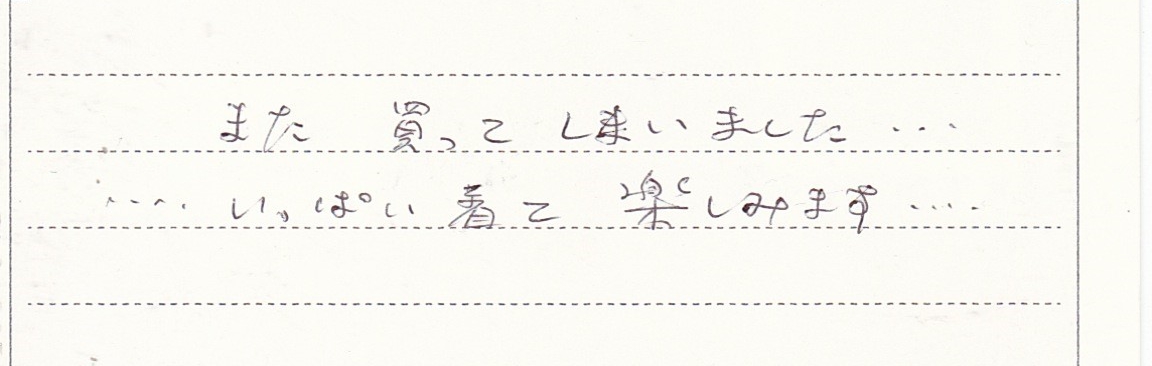 また 買って しまいました ...
.... いっぱい着て 楽しみます ....